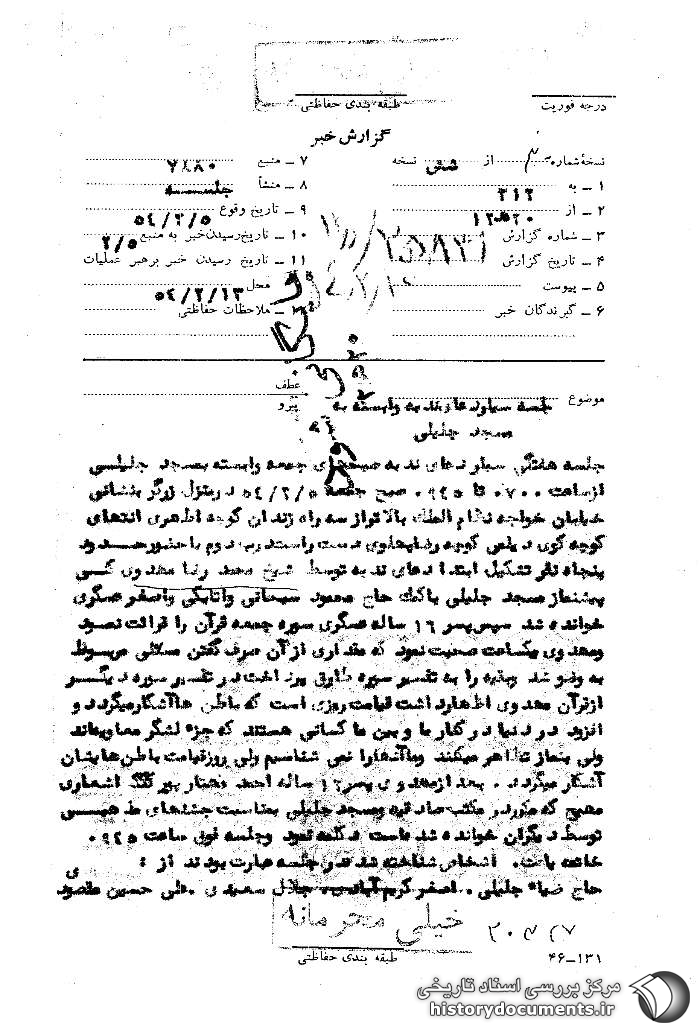 درجه فوریت
طبقه بندی حفاظتی
گزارش خبر
نسخه شماره از شش نسخه
۱ ــ به ۳۱۲
۲ ــ از ۱۲ ۲۰
۳ ــ شماره گزارش
۴ ــ تاریخ گزارش
۵ ــ پیوست
۶ ــ گیرندگان خبر
۷ ــ منبع ۷۸۸۰
۸ ــ منشأ جلسه
۹ ــ تاریخ وقوع ۵۴/۲/۵
۱۰ ــ تاریخ رسیدن خبر به منبع ۲/۵
۱۱ ــ تاریخ رسیدن خبر برهبر عملیات
محل ۵۴/۲/۱۳
ملاحظات حفاظتی
موضوع جلسه سیاردعا ندبه وابسته به
مسجد جلیلی
عطف
پیرو
جلسه هفتگی سیار دعای ندبه صبحهای جمعه وابسته بمسجد جلیلی
ازساعت ۰۷۰۰ تا ۰۹۴۵ صبح جمعه ۵۴/۲/۵ در منزل زرگر بنشانی
خیابان خواجه نظام الملک بالاتر از سه راه زندان کوچه اظهری انتهای
کوچه کوی دیلمی کوچه رضا پهلوی دست راست درب دوم با حضور حدود
پنجاه نفر تشکیل ابتدا دعای ندبه توسط شیخ محمد رضا مهدوی کنی
پیشنماز مسجد جلیلی باکمک حاج محمود سبحانی واتابکی واصغر عسگری
خوانده شد سپس پسر ۱۶ ساله عسگری سوره جمعه قرآن را قرائت نمود
ومهدوی یکساعت صحبت نمود که مقداری از آن صرف گفتن مسائلی مربوط
به وضو شد وبقیه را به تفسیر سوره طارق پرداخت در تفسیر سوره دیگر
ازقرآن مهدوی اظهارداشت قیامت روزی است که باطن هاآشکارمیگردد و
افزود در دنیا در کنار ما و بین ما کسانی هستند که جزء لشگر معاویه‌اند
ولی بنماز تظاهر میکنند وماآنهارا نمی شناسیم ولی روزقیامت باطن هایشان
آشکار میگردد . بعد ازمهدوی پسر ۱۲ ساله احمد اشعاری
مهیج که در مکتب صادقیه ومسجد جلیلی بمناسبت جشنهای مذهبی
توسط دیگران خوانده شده است دکلمه نمود وجلسه فوق ساعت ۰۹۴۵
خاتمه یافت. اشخاص شناخته شده در جلسه عبارت بودند از :
حاج ضیاء جلیلی . اصغر کرم آبادی . جلال سعیدی . علی حسین مقصودی
خیلی محرمانه
طبقه بندی حفاظتی
۴۶-۱۳۱
مرکز بررسی اسناد تاریخی
historydocuments.ir